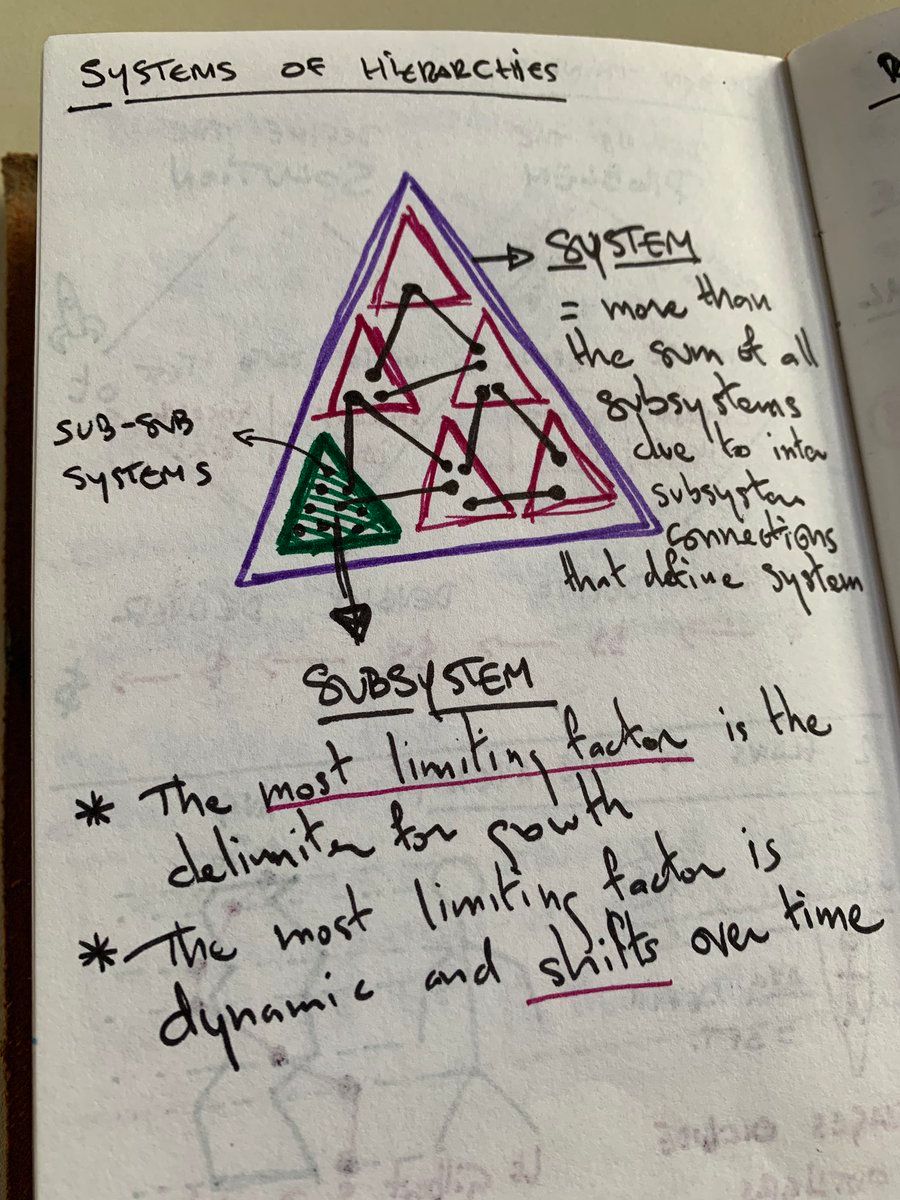 SYSTEMS OF HIERARCHIES
SYSTEM
= more than
the sum of all
subsystems
due to inter
subsystem
connections
that define system
SUB-SUB
SYSTEMS
SUBSYSTEM
* The most limiting factor is the
delimiter for growth
* The most limiting factor is
dynamic and shifts over time